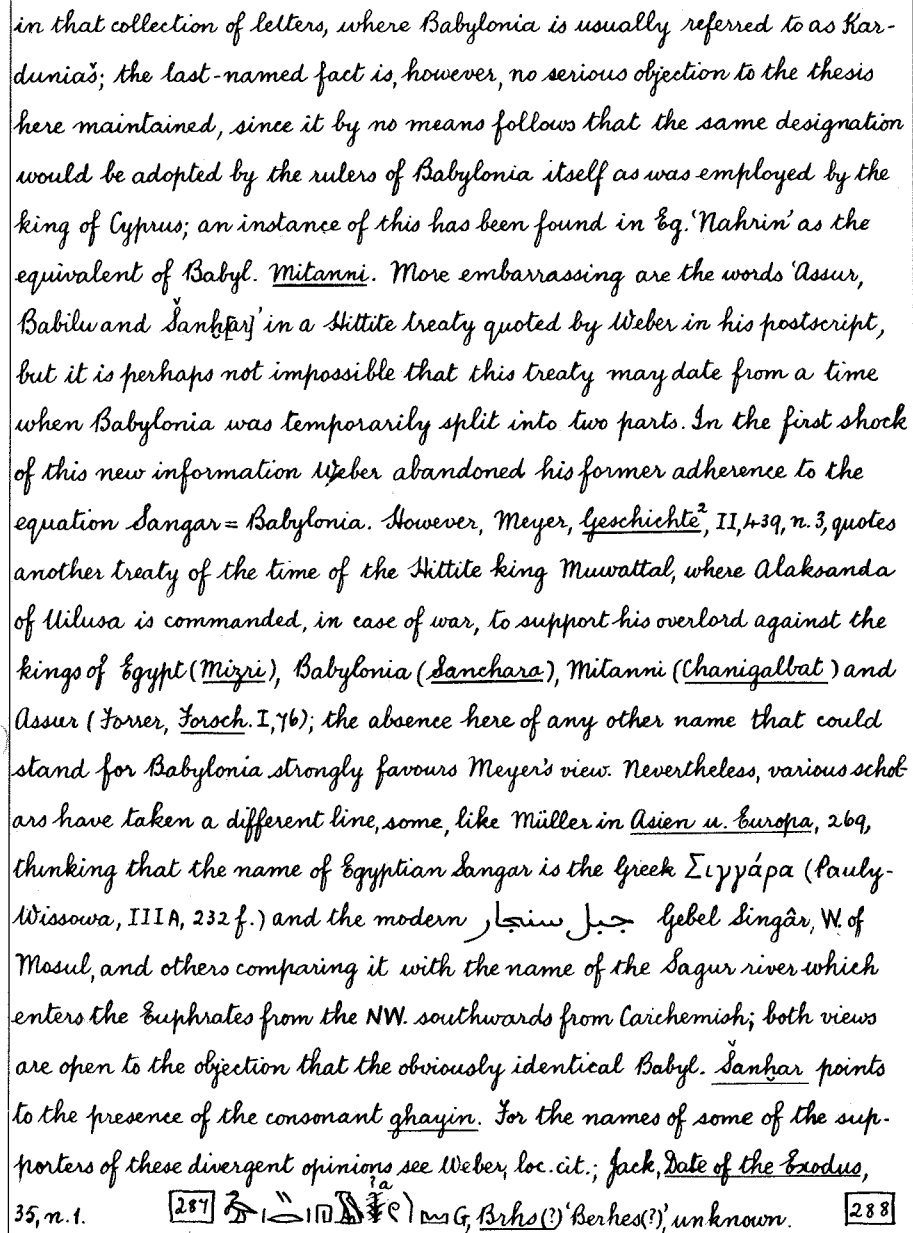 in that collection of letters, where Babylonia is usually referred to as Kar-
duniaš; the last-named fact is, however, no serious objection to the thesis
here maintained, since it by no means follows that the same designation
would be adopted by the rulers of Babylonia itself as was employed by the
king of Cyprus; an instance of this has been found in Eg. 'Nahrin' as the
equivalent of Babyl. Mitanni. More embarrassing are the words 'Assur,
Babilu and Šanḫ[ar]' in a Hittite treaty quoted by Weber in his postscript,
but it is perhaps not impossible that this treaty may date from a time
when Babylonia was temporarily split into two parts. In the first shock
of this new information Weber abandoned his former adherence to the
equation Sangar = Babylonia. However, Meyer, Geschichte², II, 439, n. 3, quotes
another treaty of the time of the Hittite king Muwattal, where Alaksanda
of Uilusa is commanded, in case of war, to support his overlord against the
kings of Egypt (Mizri), Babylonia (Sanchara), Mitanni (Chanigalbat) and
Assur (Forrer, Forsch. I, 76); the absence here of any other name that could
stand for Babylonia strongly favours Meyer's view. Nevertheless, various schol-
ars have taken a different line, some, like Müller in Asien u. Europa, 269,
thinking that the name of Egyptian Sangar is the Greek Σιγγάρα (Pauly-
Wissowa, III A, 232 f.) and the modern جبل سنجار Gebel Singâr, W. of
Mosul, and others comparing it with the name of the Sagur river which
enters the Euphrates from the NW. southwards from Carchemish; both views
are open to the objection that the obviously identical Babyl. Šanḫar points
to the presence of the consonant ghayin. For the names of some of the sup-
porters of these divergent opinions see Weber, loc. cit.; Jack, Date of the Exodus,
35, n. 1. 287 ? a G, Brhs (?) 'Berhes(?)', unknown. 288